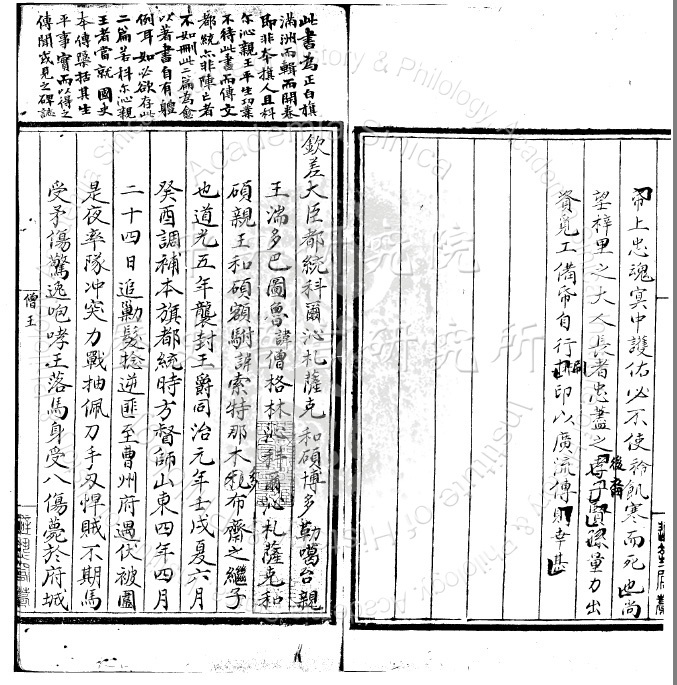 帝上忠魂冥中護佑必不使矜飢寒而死也尚
望梓里之大人長者忠藎之孝子賢孫量力出
後裔
資覓工備帝自行刷印以廣流傳則幸甚
此書為正白旗
滿洲而輯而開卷
即非本旗人且科
尔沁親王平生功業
不待此書而傳文
都統亦非陣亡者
不如刪此二篇為愈
以著書自有體
例耳如必欲存此
二篇若科尔沁親
王者當就 國史
本傳檃括其生
平事實而以得之
傳聞或見之碑誌
欽差大臣都統科爾沁札薩克和碩博多勒噶台親
王湍多巴圖魯諱僧格林沁科爾沁札薩克和
碩親王和碩額駙諱索特那木多布齋之繼子
也道光五年襲封王爵同治元年壬戌夏六月
癸酉調補本旗都統時方督師山東四年四月
二十四日追勦髮捻逆匪至曹州府遇伏被圍
是夜率隊冲突力戰抽佩刀手刃悍賊不期馬
受矛傷驚逸咆哮王落馬身受八傷薨於府城
僧王